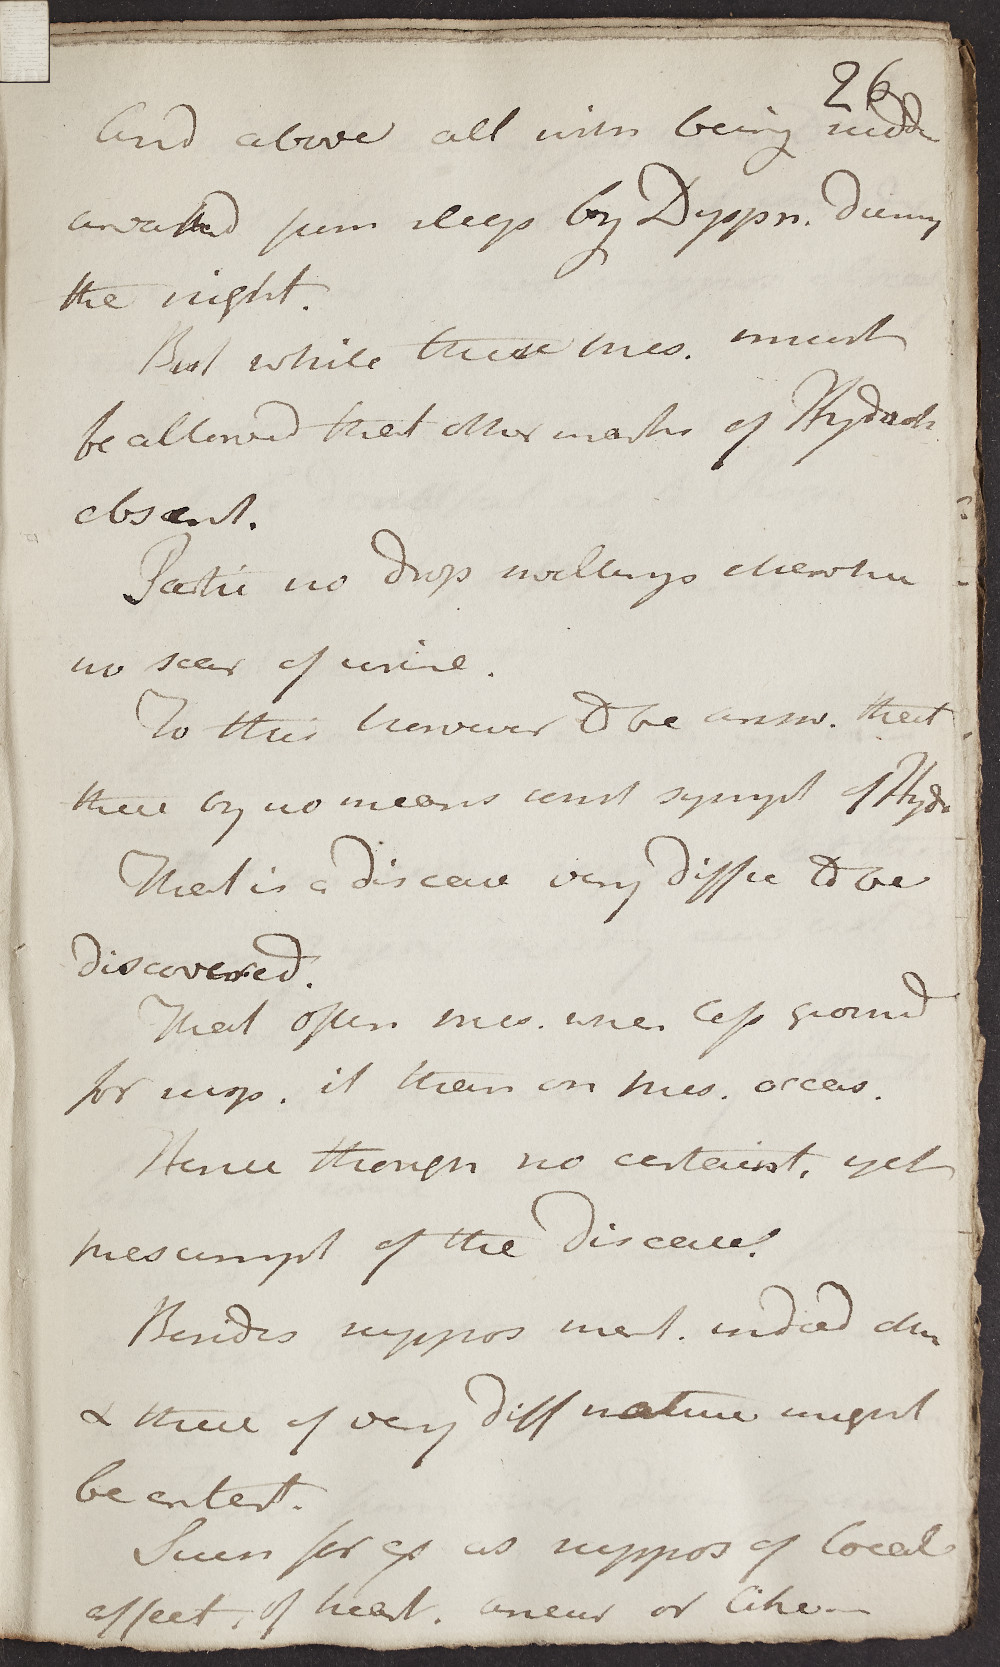 26
And above all with being sudd
awaked from sleep by Dyspn. During
the night.
But while these pres. must
be allowed that other marks of Hydroth
absent.
Partic no drop swellings elsewhere
no scar of urine.
To this however to be answ. that
these by no means const sympt of Hydro
That is a disease very diffic to be
discovered.
That often pres. when less ground
for susp. it than on pres. occas.
Hence though no certaint. yet
presumpt of the Disease.
Besides suppos ment. indeed other
& these of very Diff nature might
be entert.
Such for ex as suppos of local
affect. of heart. aneur or like—